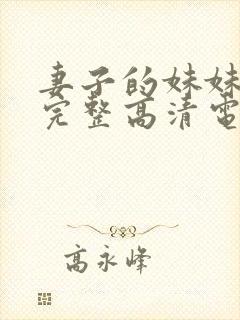 妻子的妹妹
完整高清電
高永峰